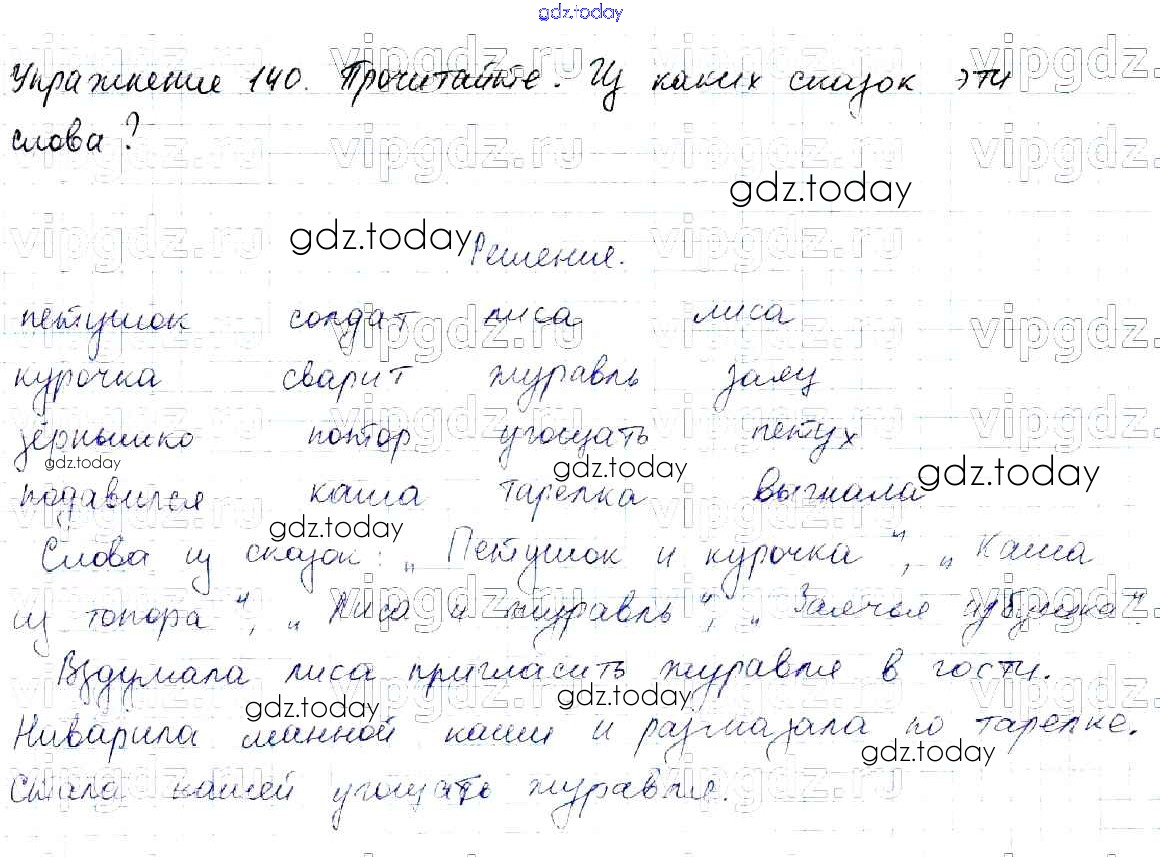 gdz.today
Упражнение 140. Прочитайте. Из каких сказок эти
слова?
gdz.today
gdz.today
Решение.
петушок солдат лиса лиса
курочка сварит журавль заяц
зёрнышко топор угощать петух
gdz.today gdz.today gdz.today
подавился каша тарелка выгнала
gdz.today
Слова из сказок: „Петушок и курочка", „Каша
из топора", „Лиса и журавль", „Заячья избушка".
Вздумала лиса пригласить журавля в гости.
gdz.today gdz.today
Наварила манной каши и размазала по тарелке.
gdz.today
Стала кашей угощать журавля.